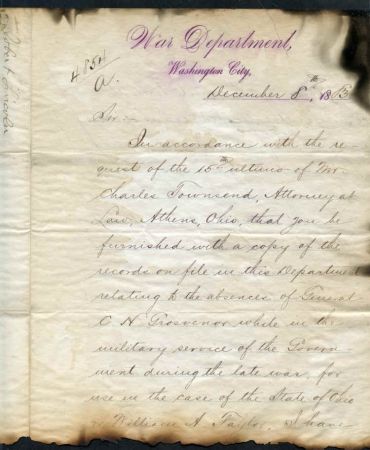 War Department,
Washington City,
4854
A.
December 8th, 1883
Sir:—
In accordance with the re-
quest of the 15th ultimo of Mr
Charles Townsend, Attorney at
Law, Athens, Ohio, that you be
furnished with a copy of the
records on file in this Department
relating to the absences of General
C H Grosvenor while in the
military service of the Govern-
ment during the late war, for
use in the case of the State of Ohio
vs William A Taylor, I have